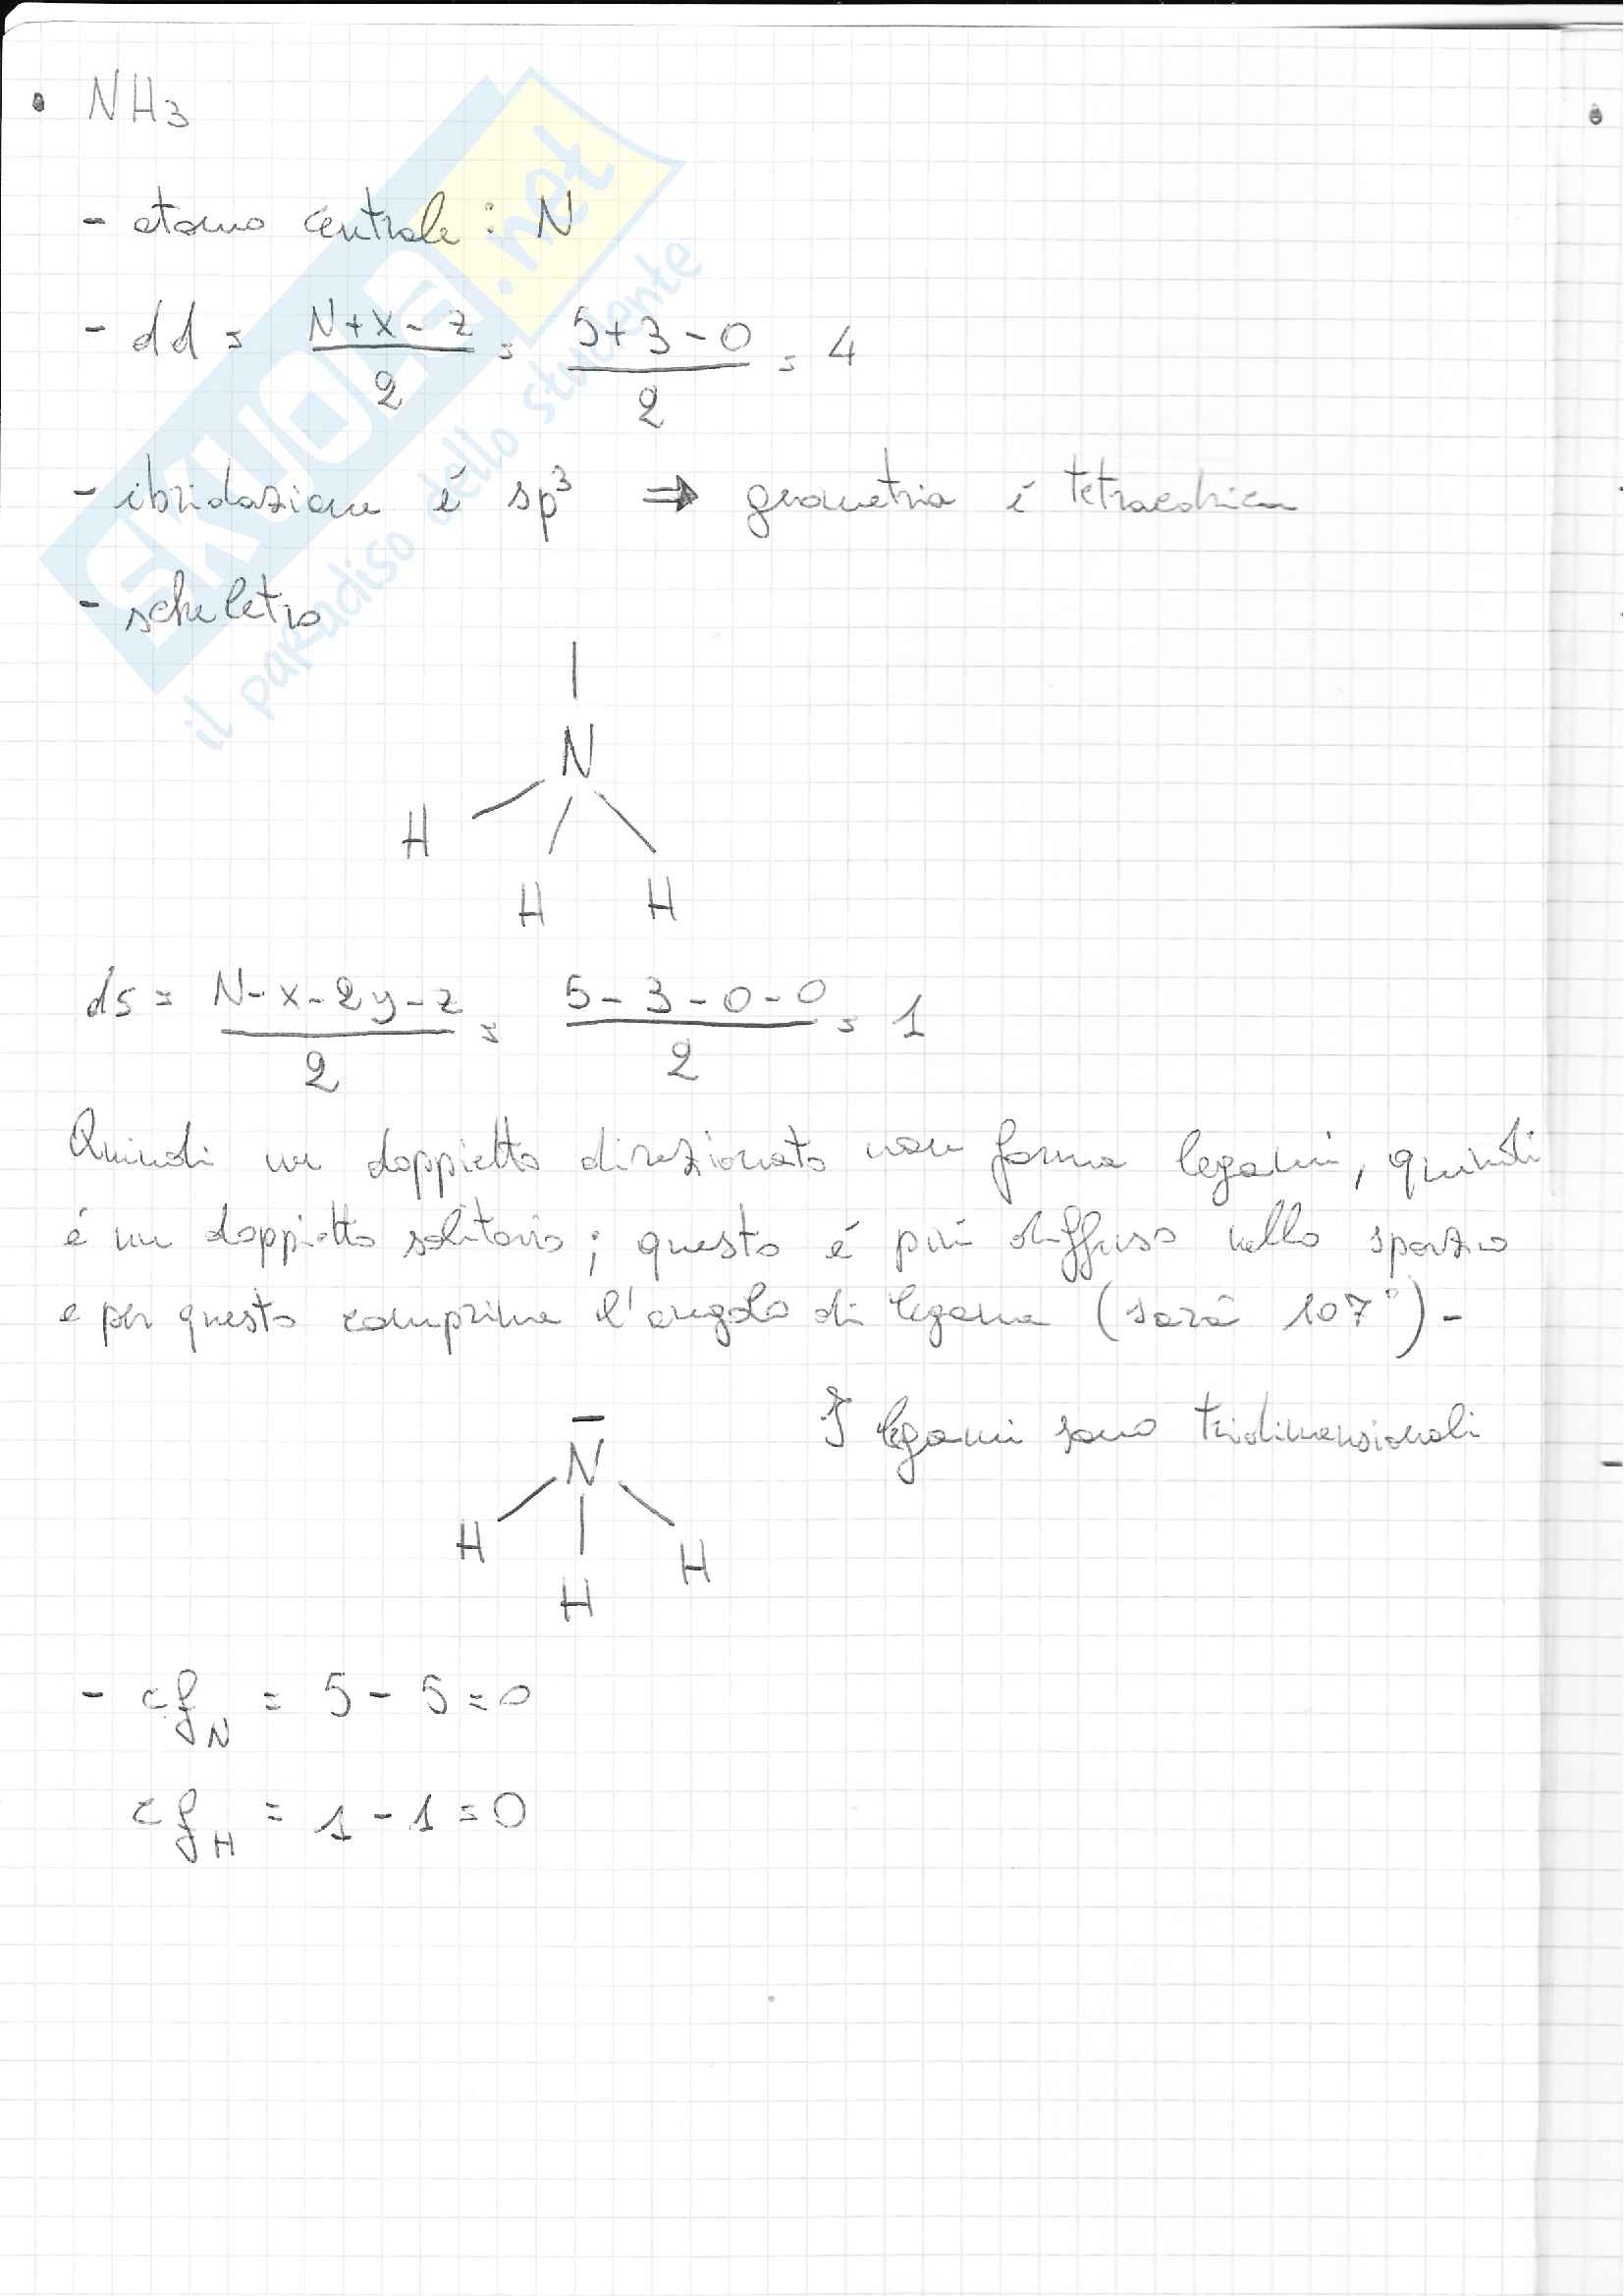 • NH3
- atomo centrale : N
- dd = N+x-z/2 = 5+3-0/2 = 4
- ibridazione é sp³ ⇒ geometria é tetraedrica
- scheletro
N
H
H H
ds = N-x-2y-z/2 = 5-3-0-0/2 = 1
Quindi un doppietto direzionato non forma legami, quindi
é un doppietto solitario ; questo é piú diffuso nello spazio
e per questo comprime l'angolo di legame (sará 107°) -
I legami sono tridimensionali
N
H H
H
- cfN = 5 - 5 = 0
cfH = 1 - 1 = 0
SKUOLA.net
il paradiso dello studente